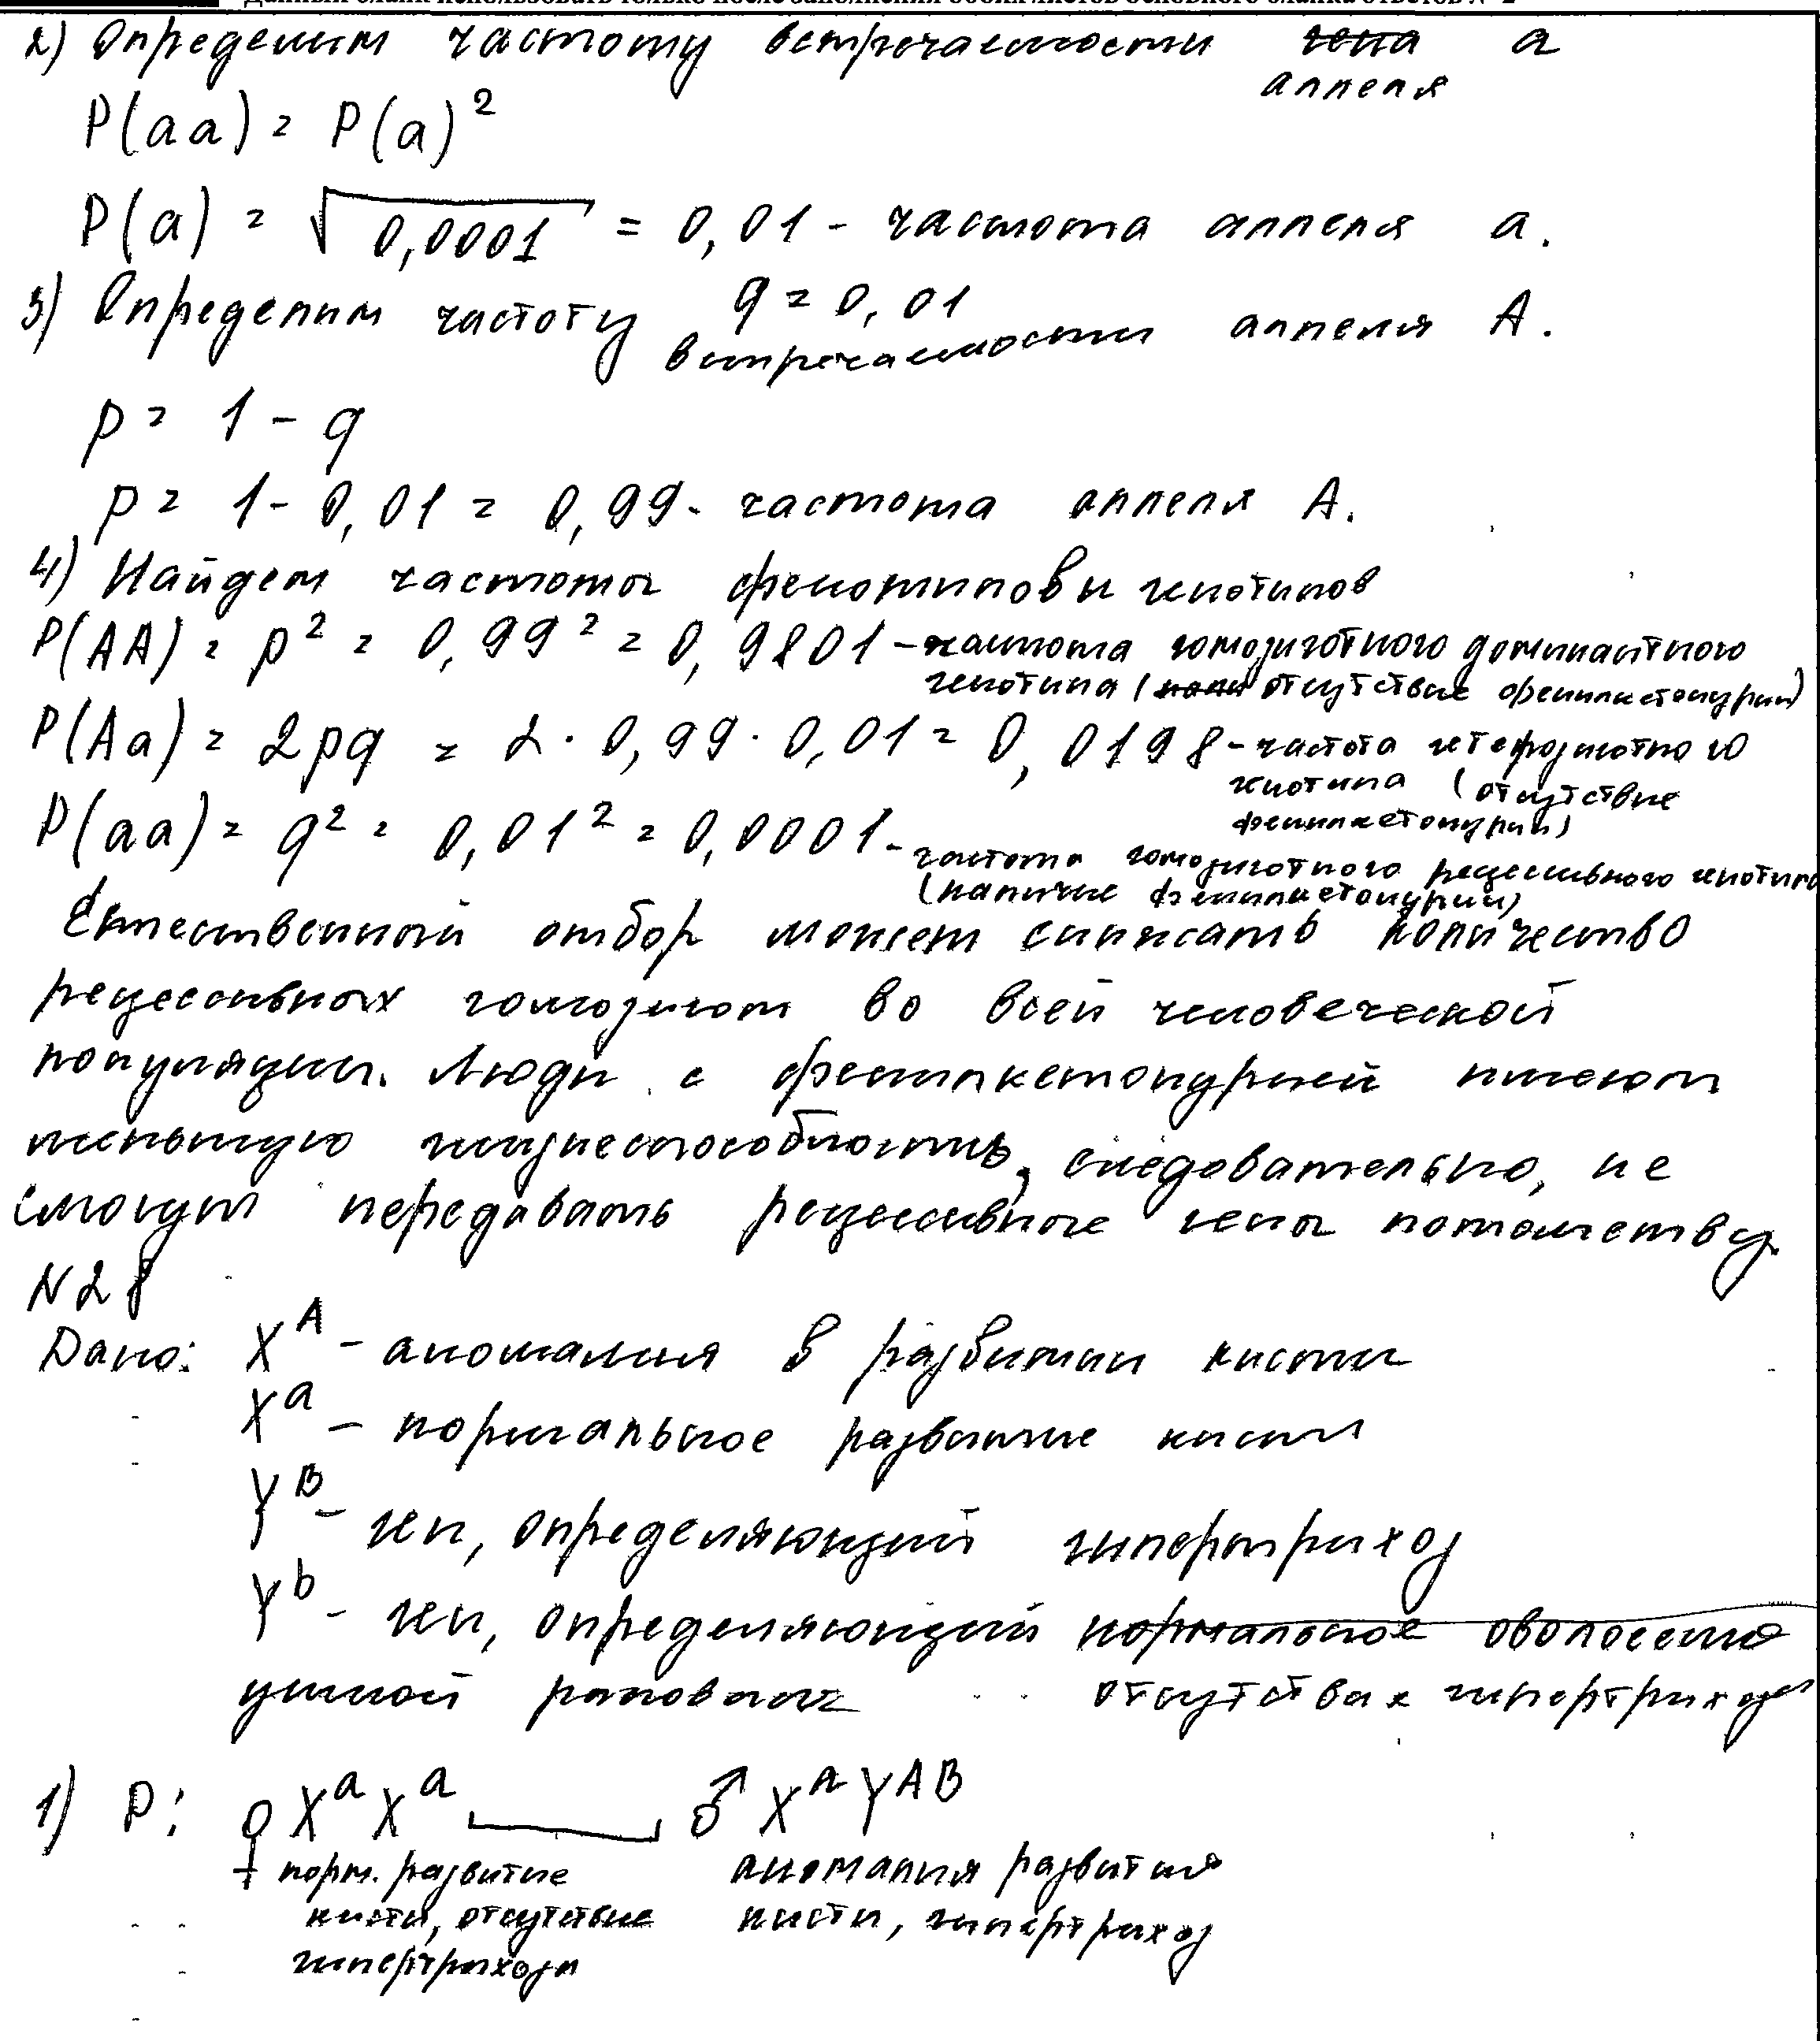 Данный бланк использовать только после заполнения обоих листов основного бланка ответов № 2
2) Определим частоту встречаемости гена а
аллеля
P(aa) = P(a)²
P(a) = √0,0001 = 0,01 - частота аллеля а.
q = 0,01
3) Определим частоту встречаемости аллеля А.
p = 1 - q
p = 1 - 0,01 = 0,99 - частота аллеля А.
4) Найдем частоты фенотипов и генотипов
P(AA) = p² = 0,99² = 0,9801 - частота гомозиготного доминантного
генотипа (отсутствие фенилкетонурии)
P(Aa) = 2pq = 2 · 0,99 · 0,01 = 0,0198 - частота гетерозиготного
генотипа (отсутствие
фенилкетонурии)
P(aa) = q² = 0,01² = 0,0001 - частота гомозиготного рецессивного генотипа
(наличие фенилкетонурии)
Естественный отбор может снижать количество
рецессивных гомозигот во всей человеческой
популяции. Люди с фенилкетонурией имеют
меньшую жизнеспособность, следовательно, не
смогут передавать рецессивные гены потомству.
N28
Дано: X^A - аномалия в развитии кисти
X^a - нормальное развитие кисти
Y^B - ген, определяющий гипертрихоз
Y^b - ген, определяющий нормальное оволосение
ушной раковины отсутствие гипертрихоза
1) P: ♀ X^a X^a ♂ X^A Y^AB
норм. развитие аномалия развития
кисти, отсутствие кисти, гипертрихоз
гипертрихоза